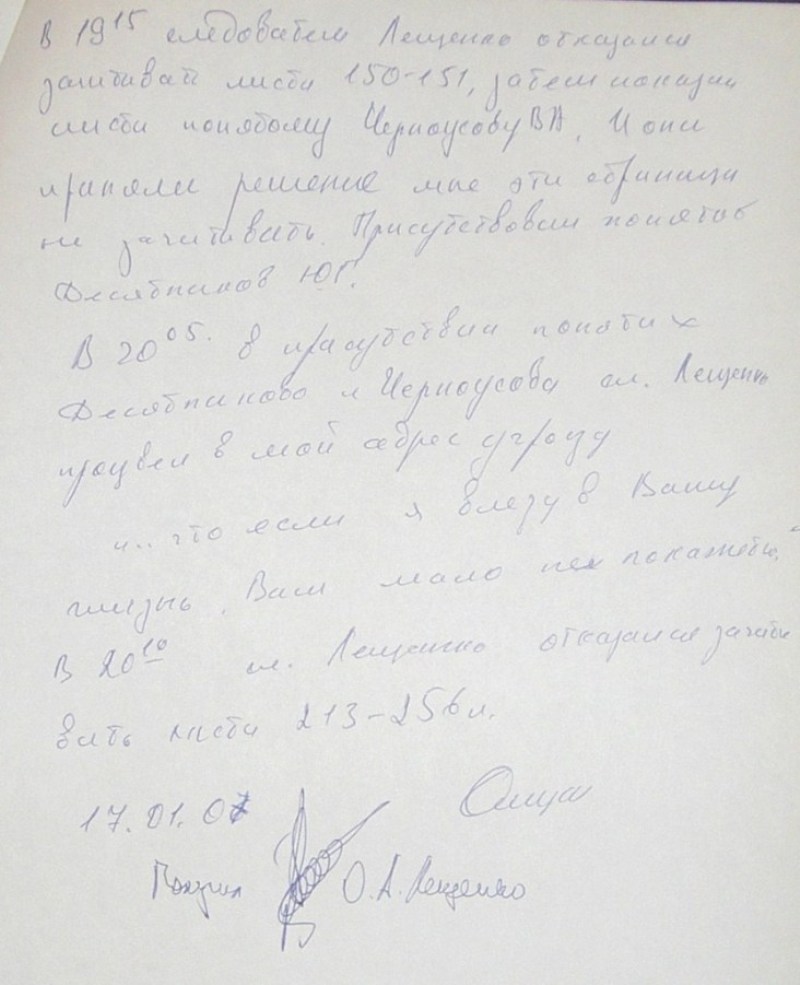 В 19¹⁵ следователь Лещенко отказался
зачитывать листы 150-151, затем показал
листы понятому Черноусову В А. И они
приняли решение мне эти страницы
не зачитывать. Присутствовал понятой
Десятников Ю Г.
В 20⁰⁵. в присутствии понятых
Десятникова и Черноусова сл. Лещенко
произвел в мой адрес угрозу
"... что если я влезу в Вашу
жизнь, Вам мало не покажется."
В 20¹⁰ сл. Лещенко отказался зачиты
вать листы 213-256 л.
17.01.07
Получил О.А. Лещенко